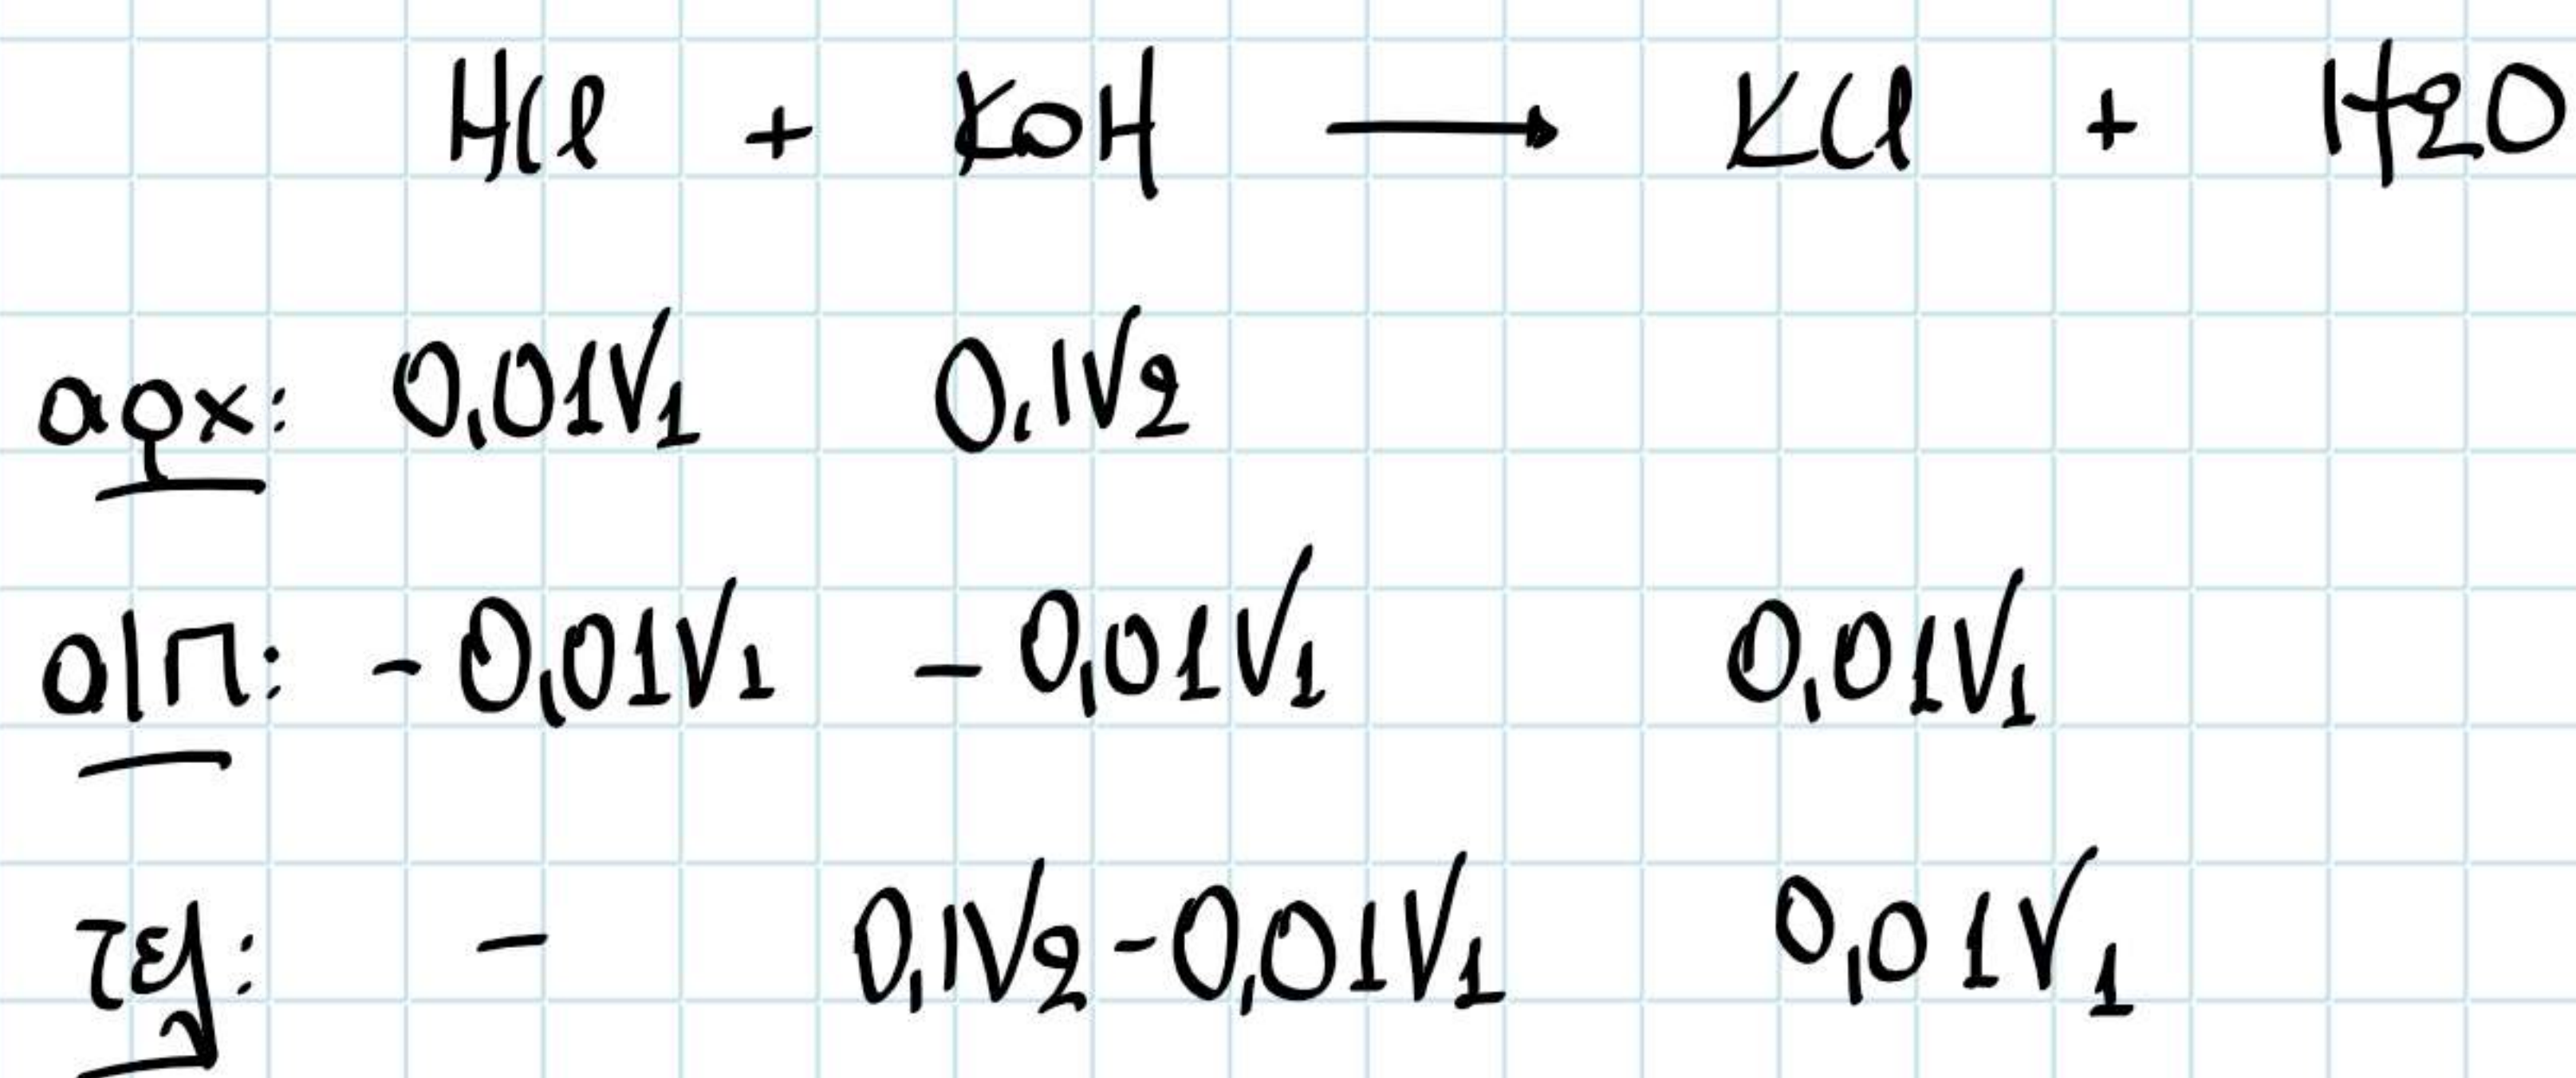 HCl + KOH → KCl + H2O
αρχ: 0,01V1 0,1V2
α|π: -0,01V1 -0,01V1 0,01V1
τελ: - 0,1V2-0,01V1 0,01V1